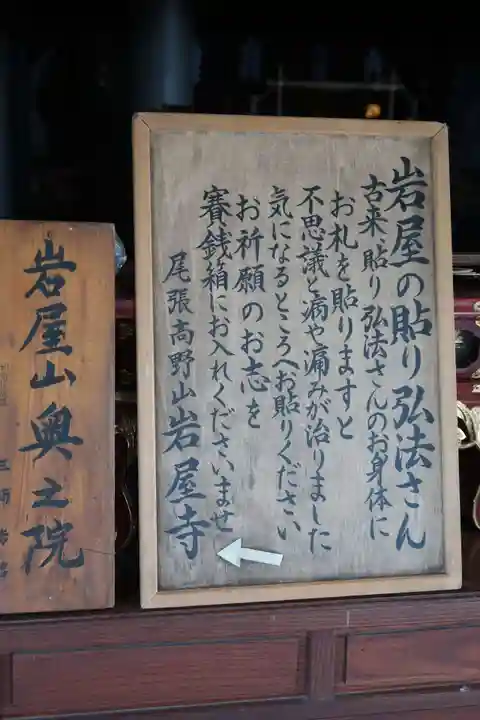 岩屋の貼り弘法さん
古来、貼り弘法さんのお身体に
お札を貼りますと
不思議と病や痛みが治りました
気になるところへお貼りください
お祈願のお志を
賽銭箱にお入れくださいませ
尾張高野山岩屋寺
岩屋山奥之院